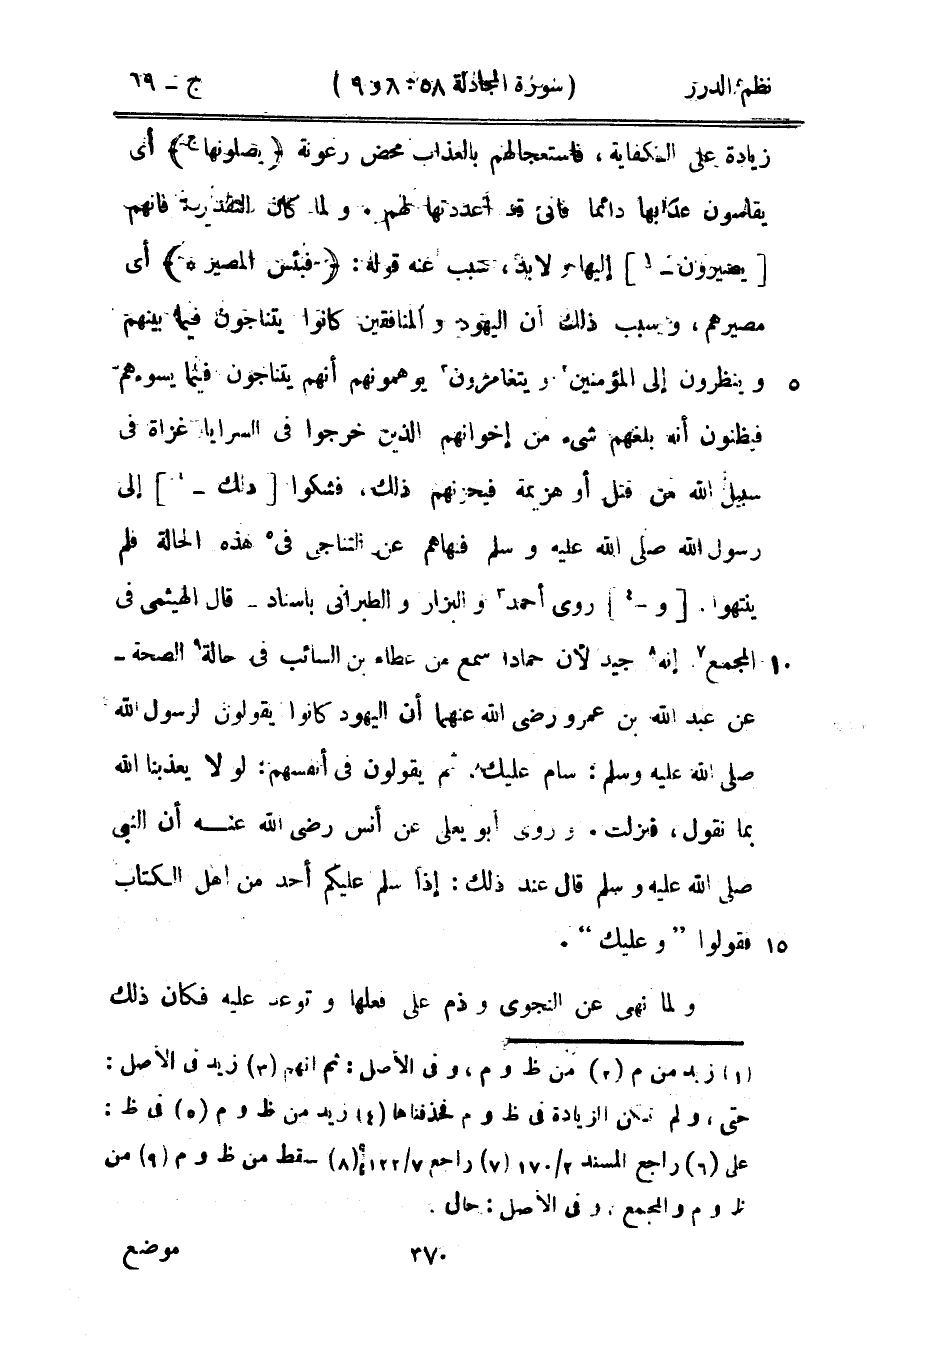 نظم الدرر (سورة المجادلة ٥٨: ٨ و ٩) ج - ٦٩
زيادة على الكفاية، فاستعجالهم بالعذاب محض رعونة ﴿يصلونها ج﴾ أى
يقاسون عذابها دائما فانى قد أعددتها لهم . و لما كان التقدير فانهم
[ يصيرون - ١ ] إليها و لابد، تسبب عنه قوله: ﴿فبئس المصير ه﴾ أى
مصيرهم، و سبب ذلك أن اليهود و المنافقين كانوا يتناجون فيما بينهم
٥ و ينظرون إلى المؤمنين٢ و يتغامزون٣ يوهمونهم أنهم يتناجون فيما يسوءهم
فيظنون أنه بلغهم شىء من إخوانهم الذين خرجوا فى السرايا غزاة فى
سبيل الله من قتل أو هزيمة فيحزنهم ذلك، فشكوا [ ذلك - ١ ] إلى
رسول الله صلى الله عليه و سلم فنهاهم عن التناجى فى٥ هذه الحالة فلم
ينتهوا . [ و - ٤ ] روى أحمد٦ و البزار و الطبرانى باسناد - قال الهيثمى فى
١٠ المجمع٧ إنه٨ جيد لأن حمادا سمع من عطاء بن السائب فى حالة٩ الصحة -
عن عبد الله بن عمرو رضى الله عنهما أن اليهود كانوا يقولون لرسول الله
صلى الله عليه وسلم: سام عليك، ثم يقولون فى أنفسهم: لو لا يعذبنا الله
بما نقول، فنزلت . و روى أبو يعلى عن أنس رضى الله عنه أن النبى
صلى الله عليه و سلم قال عند ذلك: إذا سلم عليكم أحد من اهل الكتاب
١٥ فقولوا ” و عليك “ .
و لما نهى عن النجوى و ذم على فعلها و توعد عليه فكان ذلك
(١) زيد من م (٢) من ظ و م، و فى الأصل: ثم انهم (٣) زيد فى الأصل:
حتى، و لم تكن الزيادة فى ظ و م فحذفناها (٤) زيد من ظ و م (٥) فى ظ:
على (٦) راجع المسند ٢/١٧٠ (٧) راجع ٧/١٢٢ (٨) سقط من ظ و م (٩) من
ظ و م و المجمع، و فى الأصل: حال .
٣٧٠ موضع